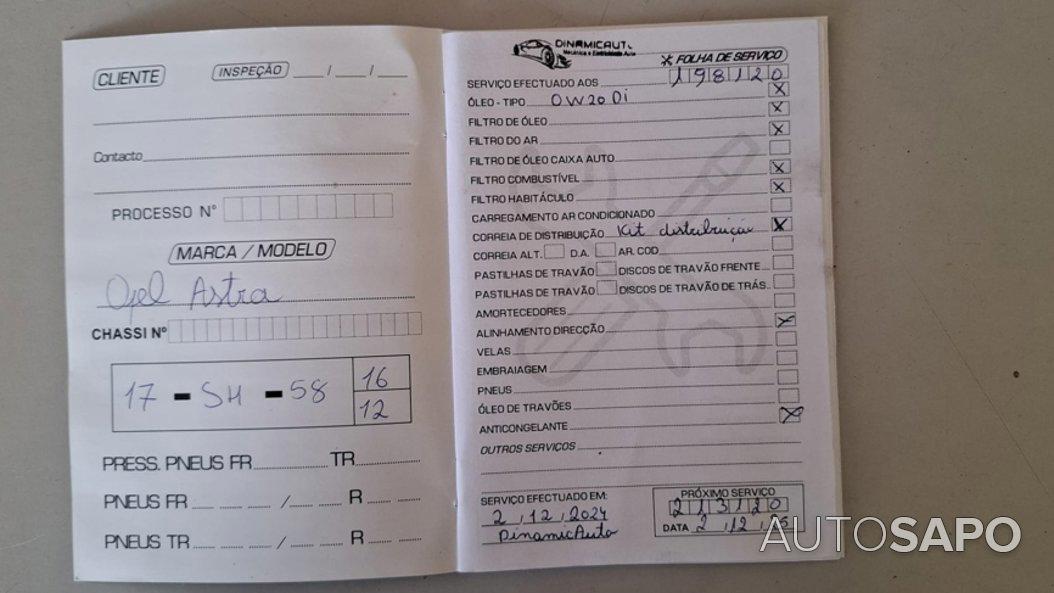 CLIENTE
INSPEÇÃO ___/___/___
Contacto
PROCESSO Nº
MARCA / MODELO
Opel Astra
CHASSI Nº
17 - SH - 58
16
12
PRESS. PNEUS FR TR
PNEUS FR / R
PNEUS TR / R
DINAMICAUTO
Mecânica e Eletricidade Auto
FOLHA DE SERVIÇO
SERVIÇO EFECTUADO AOS 198120
ÓLEO - TIPO 0W20 Di X
FILTRO DE ÓLEO X
FILTRO DO AR X
FILTRO DE ÓLEO CAIXA AUTO
FILTRO COMBUSTÍVEL X
FILTRO HABITÁCULO X
CARREGAMENTO AR CONDICIONADO
CORREIA DE DISTRIBUIÇÃO Kit distribuição X
CORREIA ALT. D.A. AR. COD
PASTILHAS DE TRAVÃO DISCOS DE TRAVÃO FRENTE
PASTILHAS DE TRAVÃO DISCOS DE TRAVÃO DE TRÁS
AMORTECEDORES
ALINHAMENTO DIRECÇÃO X
VELAS
EMBRAIAGEM
PNEUS
ÓLEO DE TRAVÕES
ANTICONGELANTE X
OUTROS SERVIÇOS
SERVIÇO EFECTUADO EM:
2 / 12 / 2024
DinamicAuto
PRÓXIMO SERVIÇO
213120
DATA 2 / 12 /
AUTOSAPO